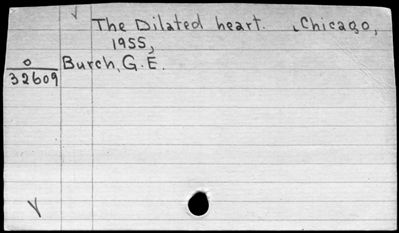 √ The Dilated heart. Chicago,
1955,
o Burch, G.E.
32609
√